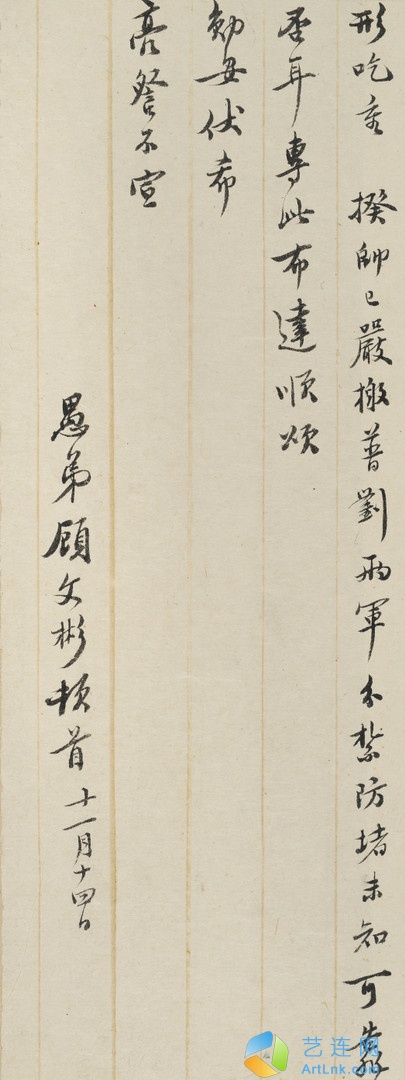 形吃重 揆帥已嚴檄普劉兩軍分紮防堵未知可無
恙耳專此布達順頌
勛安伏希
亮詧不宣
愚弟顧文彬頓首十一月十四日
艺连网
ArtLnk.com